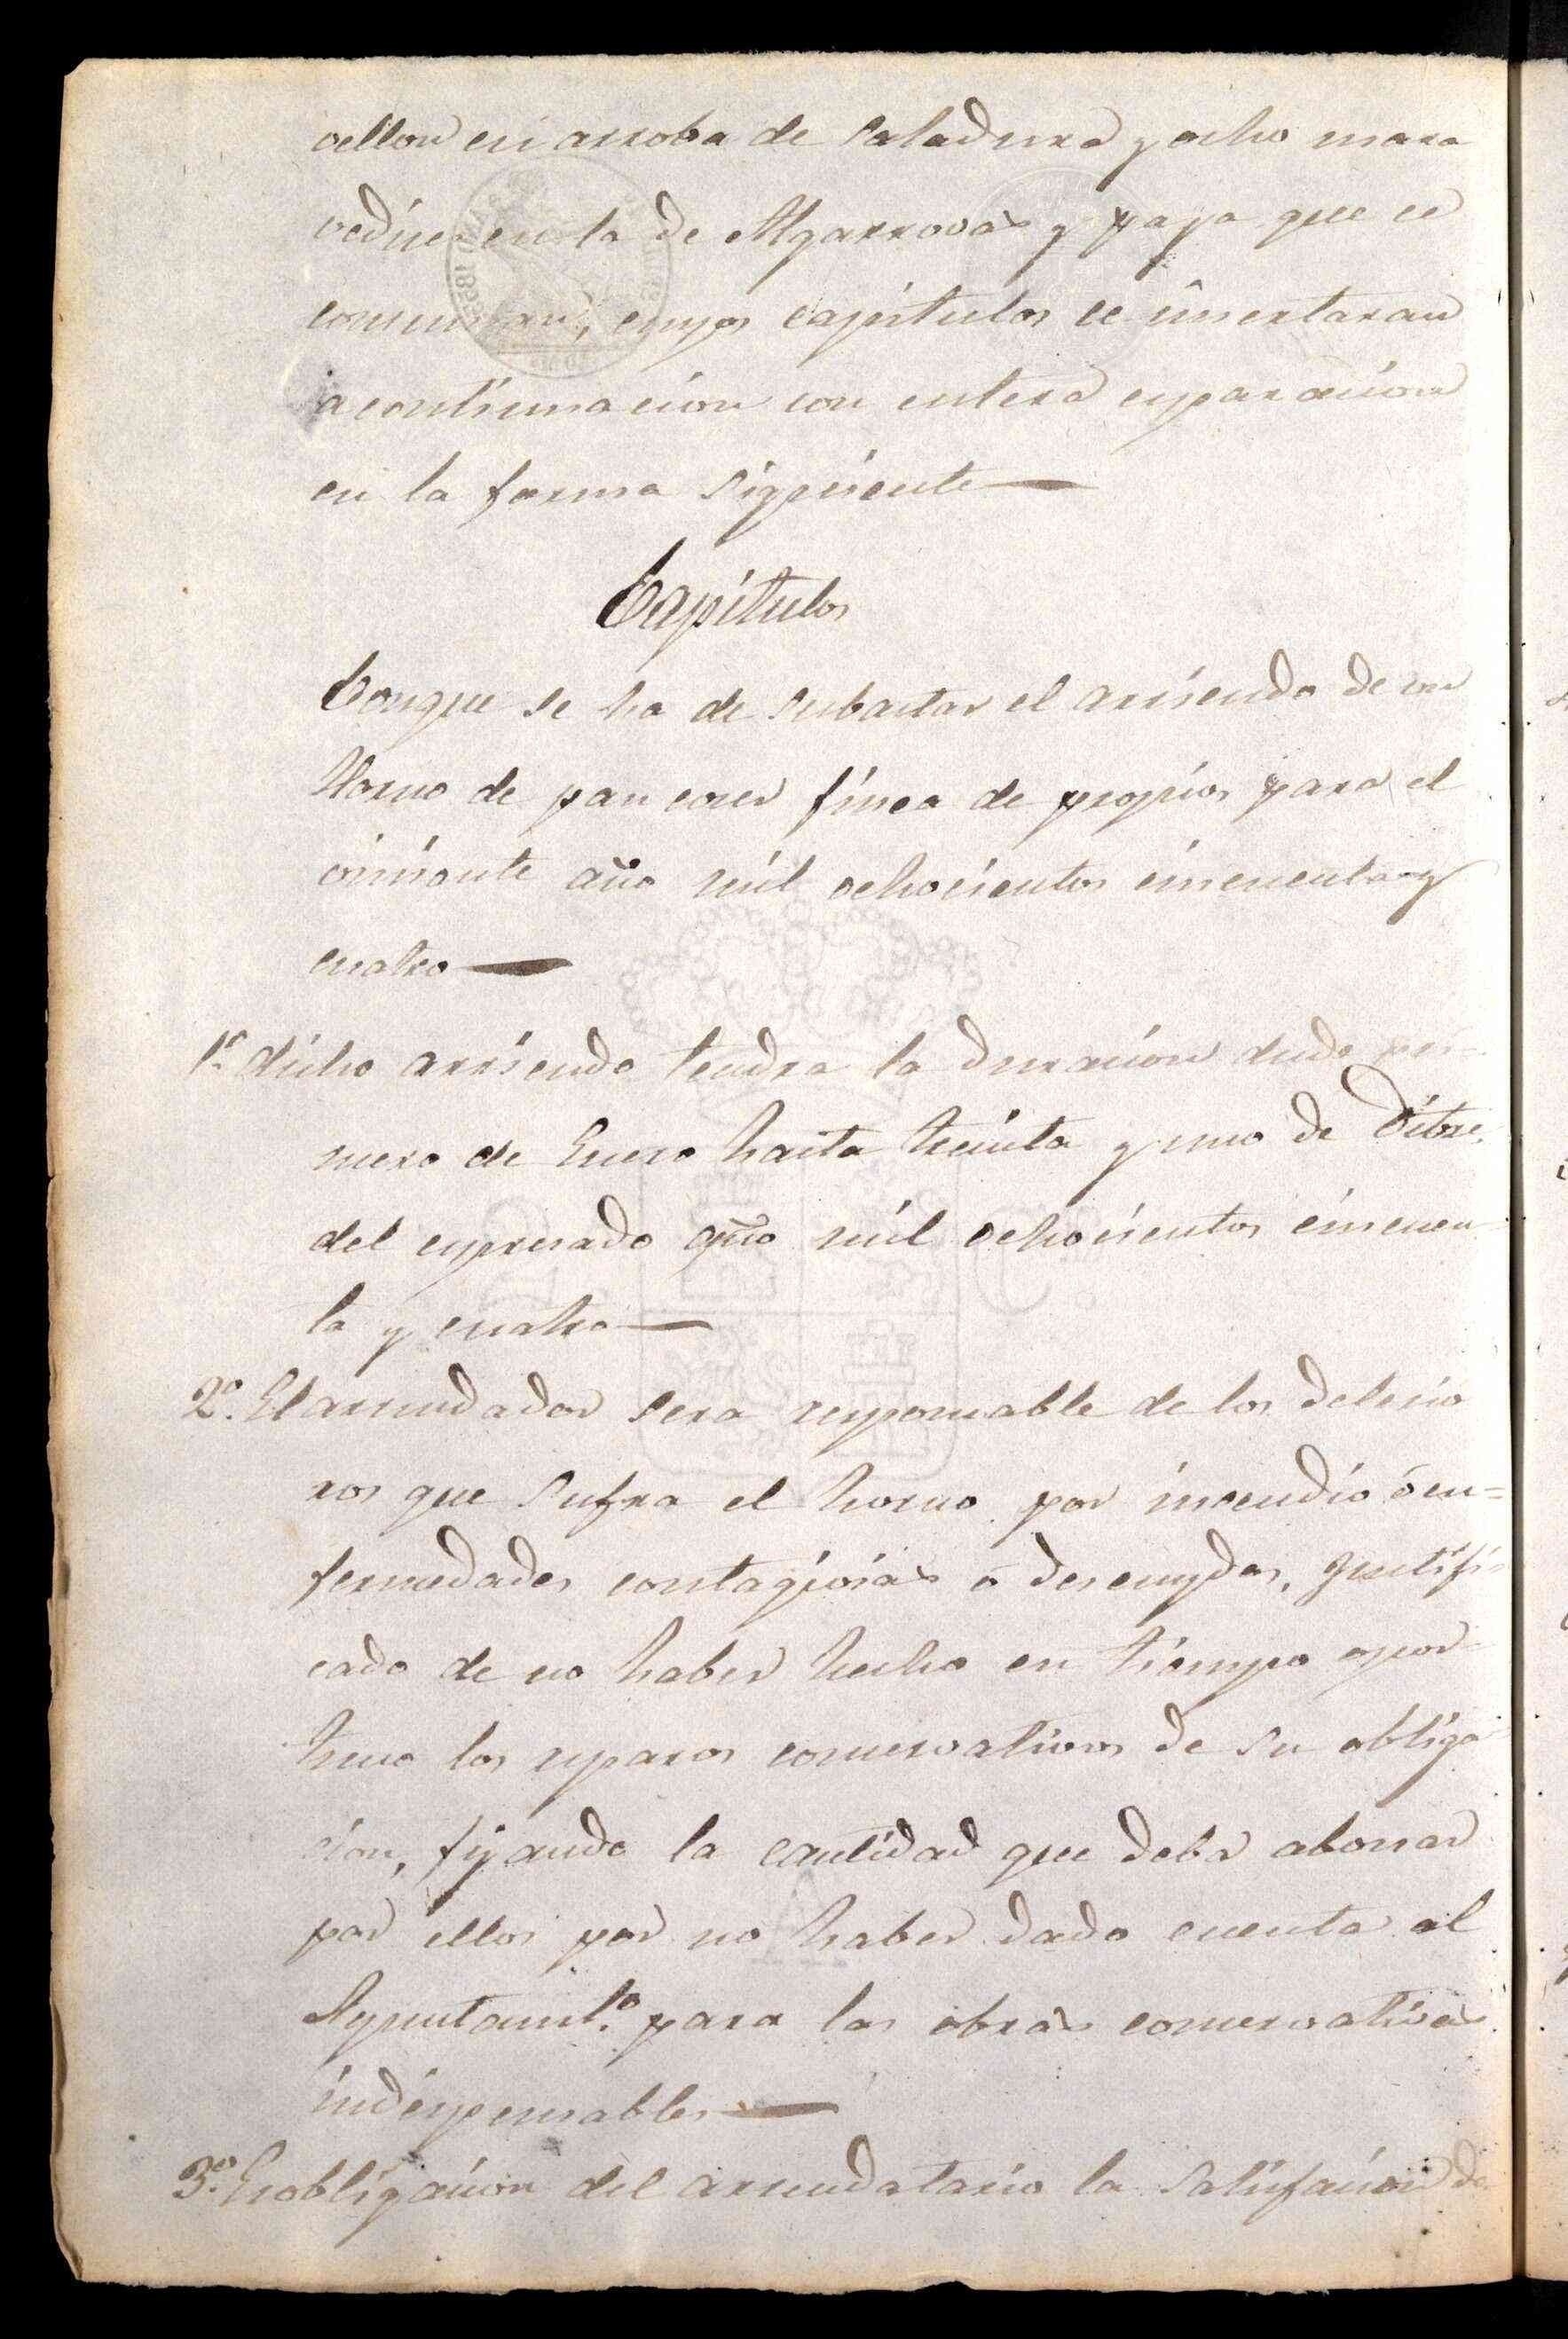 vellon en arroba de Saladura y ocho mara
vedises en la de Algarrovas y paja que se
consuman, cuyos capitulos se insertaran
a continuacion con entera espararacion
en la forma siguiente—
Capitulos
Conque se ha de subastar el arriendo de un
Horno de pan cocer finca de propios para el
viniente año mil ochocientos cincuenta y
cuatro—
1º. dicho arriendo tendra la duracion desde pri-
mero de Enero hasta treinta y uno de Dibre.
del espresado año mil ochocientos cincuen
ta y cuatro—
2º. El arrendador sera responsable de los deterio
ros que sufra el horno por incendio ó en=
fermedades contagiosas ó descuydos, justifi
cado de no haber hecho en tiempo opor=
tuno los reparos conservativos de su obliga
cion, fijando la cantidad que deba abonar
por ellos por no haber dado cuenta al
Ayuntamto. para las obras conservativas
indispensables—
3º. Es obligacion del arrendatario la satisfacion de